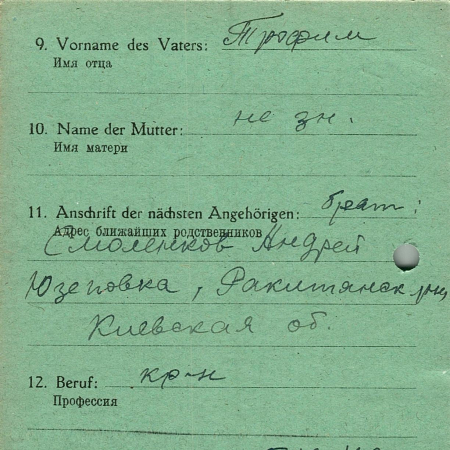 9. Vorname des Vaters: Трофим
Имя отца
10. Name der Mutter: не зн.
Имя матери
11. Anschrift der nächsten Angehörigen: брат:
Адрес ближайших родственников
Смоленков Андрей
Юзеповка, Ракитянск. рн
Киевская об.
12. Beruf: кр-н
Профессия